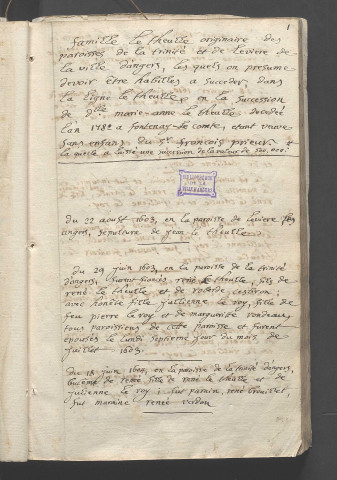 1
famille Le theulle originaire des
paroisses de la trinité et de leviere de
la ville d'angers, les quels on presume
devoir être habilles a succeder, dans
la Ligne le theulle, en la succession
de d^lle marie-anne le theulle decedée
l'an 1782 a fontenay-le-comte, etant veuve
sans enfans du s^r françois prieur.
la quelle a laissé une succession de la valeur de 120,000^l
BIBLIOTHEQUE
DE LA
VILLE D'ANGERS
du 22 aoust 1603, en la paroisse de leviere
angers, sepulture de jean le theulle.
du 29 juin 1603, en la paroisse de la trinité
d'angers, furent fiancés rené le theulle, fils de
rené le theulle et de
avec honête fille jullienne le roy, fille de
feu pierre le roy et de marguerite rondeau,
tous paroissiens de cette paroisse et furent
epousés le lundi septieme jour du mois de
juillet 1603.
Du 18 juin 1604, en la paroisse de la trinité d'angers,
batême de renée fille de rené le theulle et de
julienne le roy; fut parain, rené
fut maraine renée